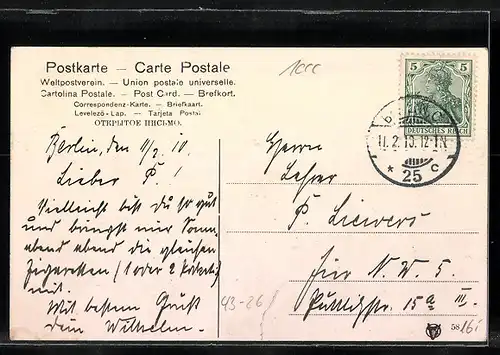 Postkarte — Carte Postale
Weltpostverein. — Union postale universelle.
Cartolina Postale. — Post Card. — Brefkort.
Correspondenz-Karte. — Briefkaart.
Levelező-Lap. — Tarjeta Postal
ОТКРЫТОЕ ПИСЬМО.
5 5
DEUTSCHES REICH
11.2.10.12-1N
* 25 c
Berlin, den 11/2. 10.
Lieber P.!
Vielleicht bist du so gut
und bringst mir Sonn-
abend abend die gleichen
Zigaretten (1 oder 2 Pakete)
mit.
Mit bestem Gruß
dein Wilhelm.
Herrn
Lehrer
P. Liewers
hier N. W. 5.
Putlitzstr. 15a III.
43-26
58